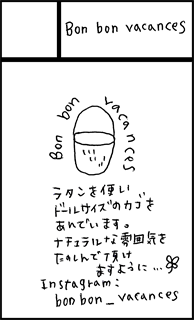 Bon bon vacances
Bon bon vacances
ラタンを使い
ドールサイズのカゴを
あんでいます。
ナチュラルな雰囲気を
たのしんで頂け
ますように…
Instagram:
bonbon_vacances